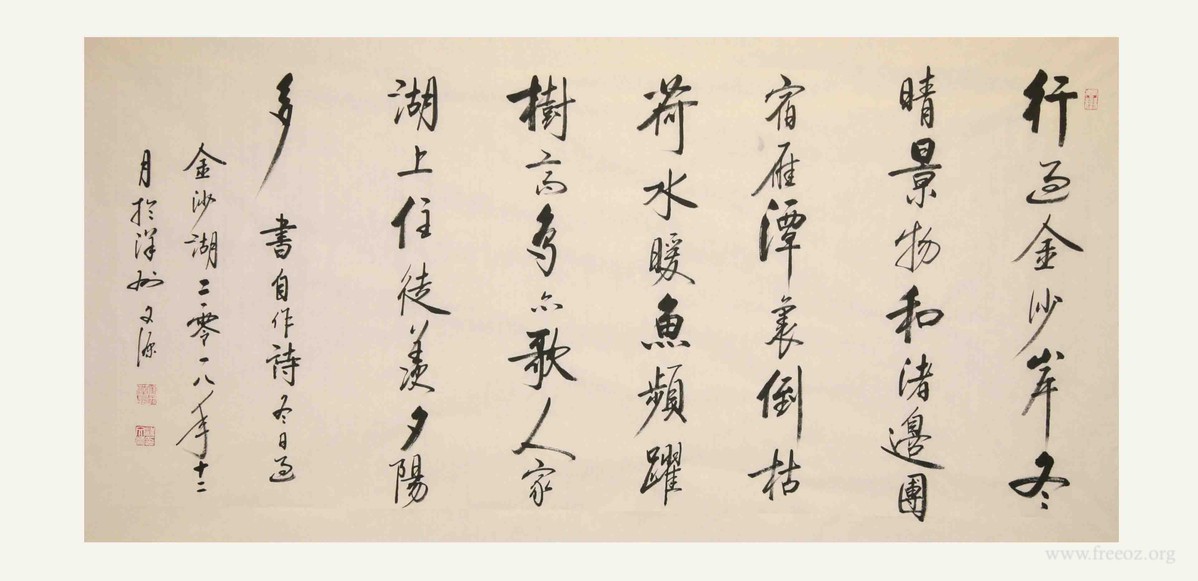 行過金沙岸冬
晴景物和渚邊團
宿雁潭裏倒枯
荷水暖魚頻躍
樹高鳥亦歌人家
湖上住徒羡夕陽
多 書自作詩冬日過
金沙湖二零一八年十二
月於洋州文源
www.freeoz.org